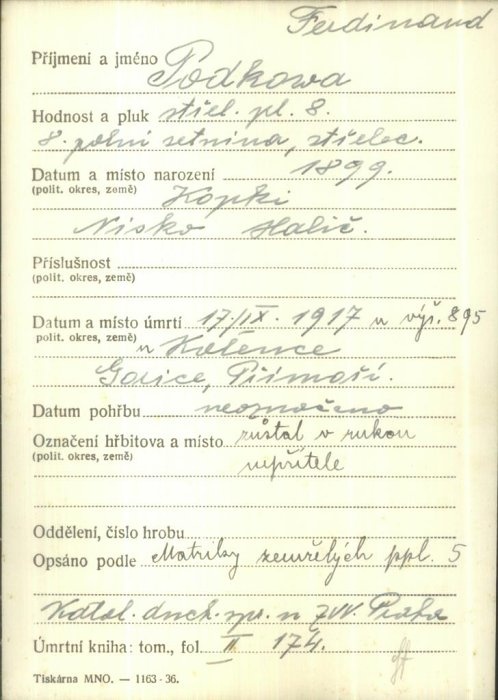 Ferdinand
Příjmení a jméno Podkowa
Hodnost a pluk střel. pl. 8.
8. polní setnina, střelec.
Datum a místo narození 1899.
(polit. okres, země) Kopki
Nisko Halič.
Příslušnost
(polit. okres, země)
Datum a místo úmrtí 17./IX. 1917 u výš. 895
polit. okres, země) u Kalence
Gorice, Přímoří.
Datum pohřbu neoznačeno
Označení hřbitova a místo zůstal v rukou
(polit. okres, země) nepřítele
Oddělení, číslo hrobu
Opsáno podle Matriky zemřelých ppl. 5
Katol. duch. spr. u ZVV. Praha
Úmrtní kniha: tom., fol. II 174.
Tiskárna MNO. — 1163-36.